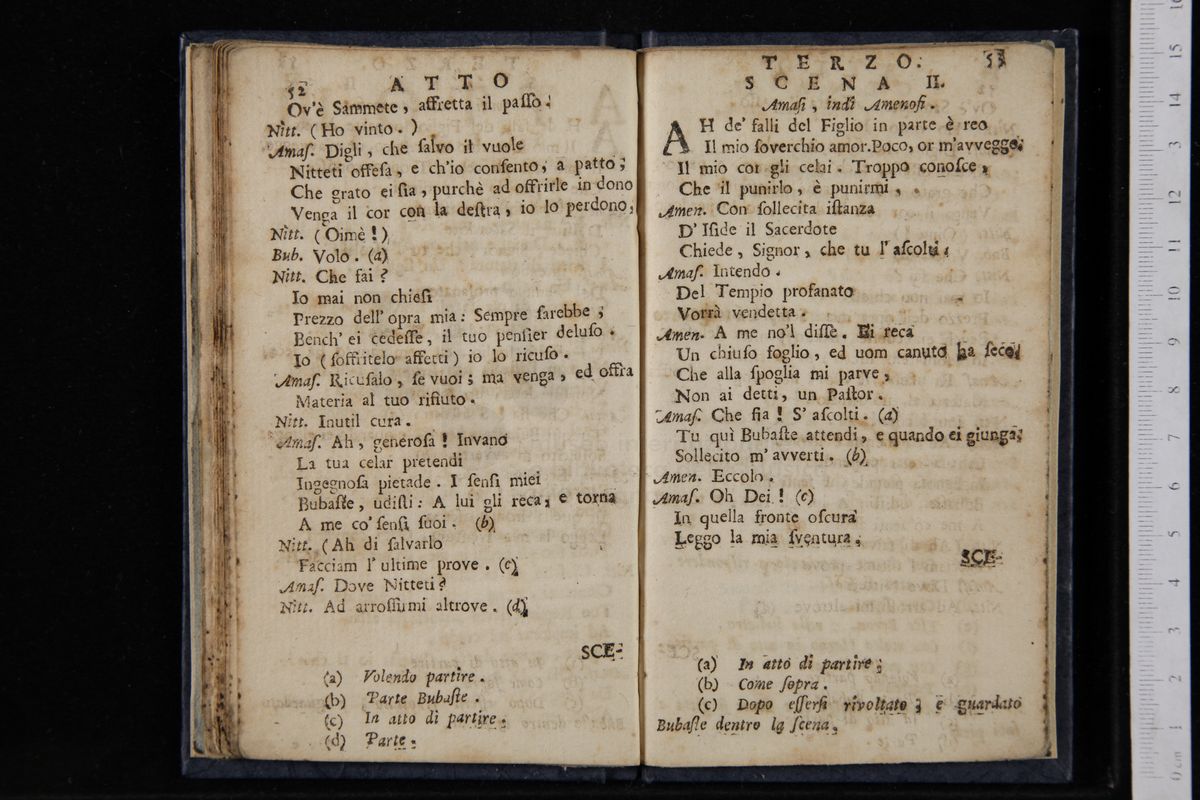 52
ATTO
Ov'è Sammete, affretta il paſſo.
Nitt. (Ho vinto.)
Amaſ. Digli, che ſalvo il vuole
Nitteti offeſa, e ch'io conſento, a patto,
Che grato ei ſia, purchè ad offrirle in dono
Venga il cor con la deſtra, io lo perdono,
Nitt. (Oimè!)
Bub. Volo. (a)
Nitt. Che fai?
Io mai non chieſi
Prezzo dell' opra mia: Sempre ſarebbe,
Bench' ei cedeſſe, il tuo penſier deluſo.
Io (ſoffritelo affetti) io lo ricuſo.
Amaſ. Ricuſalo, ſe vuoi; ma venga, ed offra
Materia al tuo rifiuto.
Nitt. Inutil cura.
Amaſ. Ah, generoſa! Invano
La tua celar pretendi
Ingegnoſa pietade. I ſenſi miei
Bubaſte, udiſti: A lui gli reca, e torna
A me co' ſenſi ſuoi. (b)
Nitt. (Ah di ſalvarlo
Facciam l' ultime prove. (c)
Amaſ. Dove Nitteti?
Nitt. Ad arroſſirmi altrove. (d)
SCE-
(a) Volendo partire.
(b) Parte Bubaſte.
(c) In atto di partire.
(d) Parte.
TERZO. 53
SCENA II.
Amaſi, indi Amenofi.
AH de' falli del Figlio in parte è reo
Il mio ſoverchio amor. Poco, or m'avveggo,
Il mio cor gli celai. Troppo conoſce,
Che il punirlo, è punirmi,
Amen. Con ſollecita iſtanza
D' Iſide il Sacerdote
Chiede, Signor, che tu l' aſcolti.
Amaſ. Intendo.
Del Tempio profanato
Vorrà vendetta.
Amen. A me no'l diſſe. Ei reca
Un chiuſo foglio, ed uom canuto ha ſeco,
Che alla ſpoglia mi parve,
Non ai detti, un Paſtor.
Amaſ. Che ſia! S' aſcolti. (a)
Tu quì Bubaſte attendi, e quando ei giunga,
Sollecito m' avverti. (b)
Amen. Eccolo.
Amaſ. Oh Dei! (c)
In quella fronte oſcura
Leggo la mia ſventura.
SCE-
(a) In atto di partire.
(b) Come ſopra.
(c) Dopo eſſerſi rivoltato, e guardato
Bubaſte dentro la ſcena.